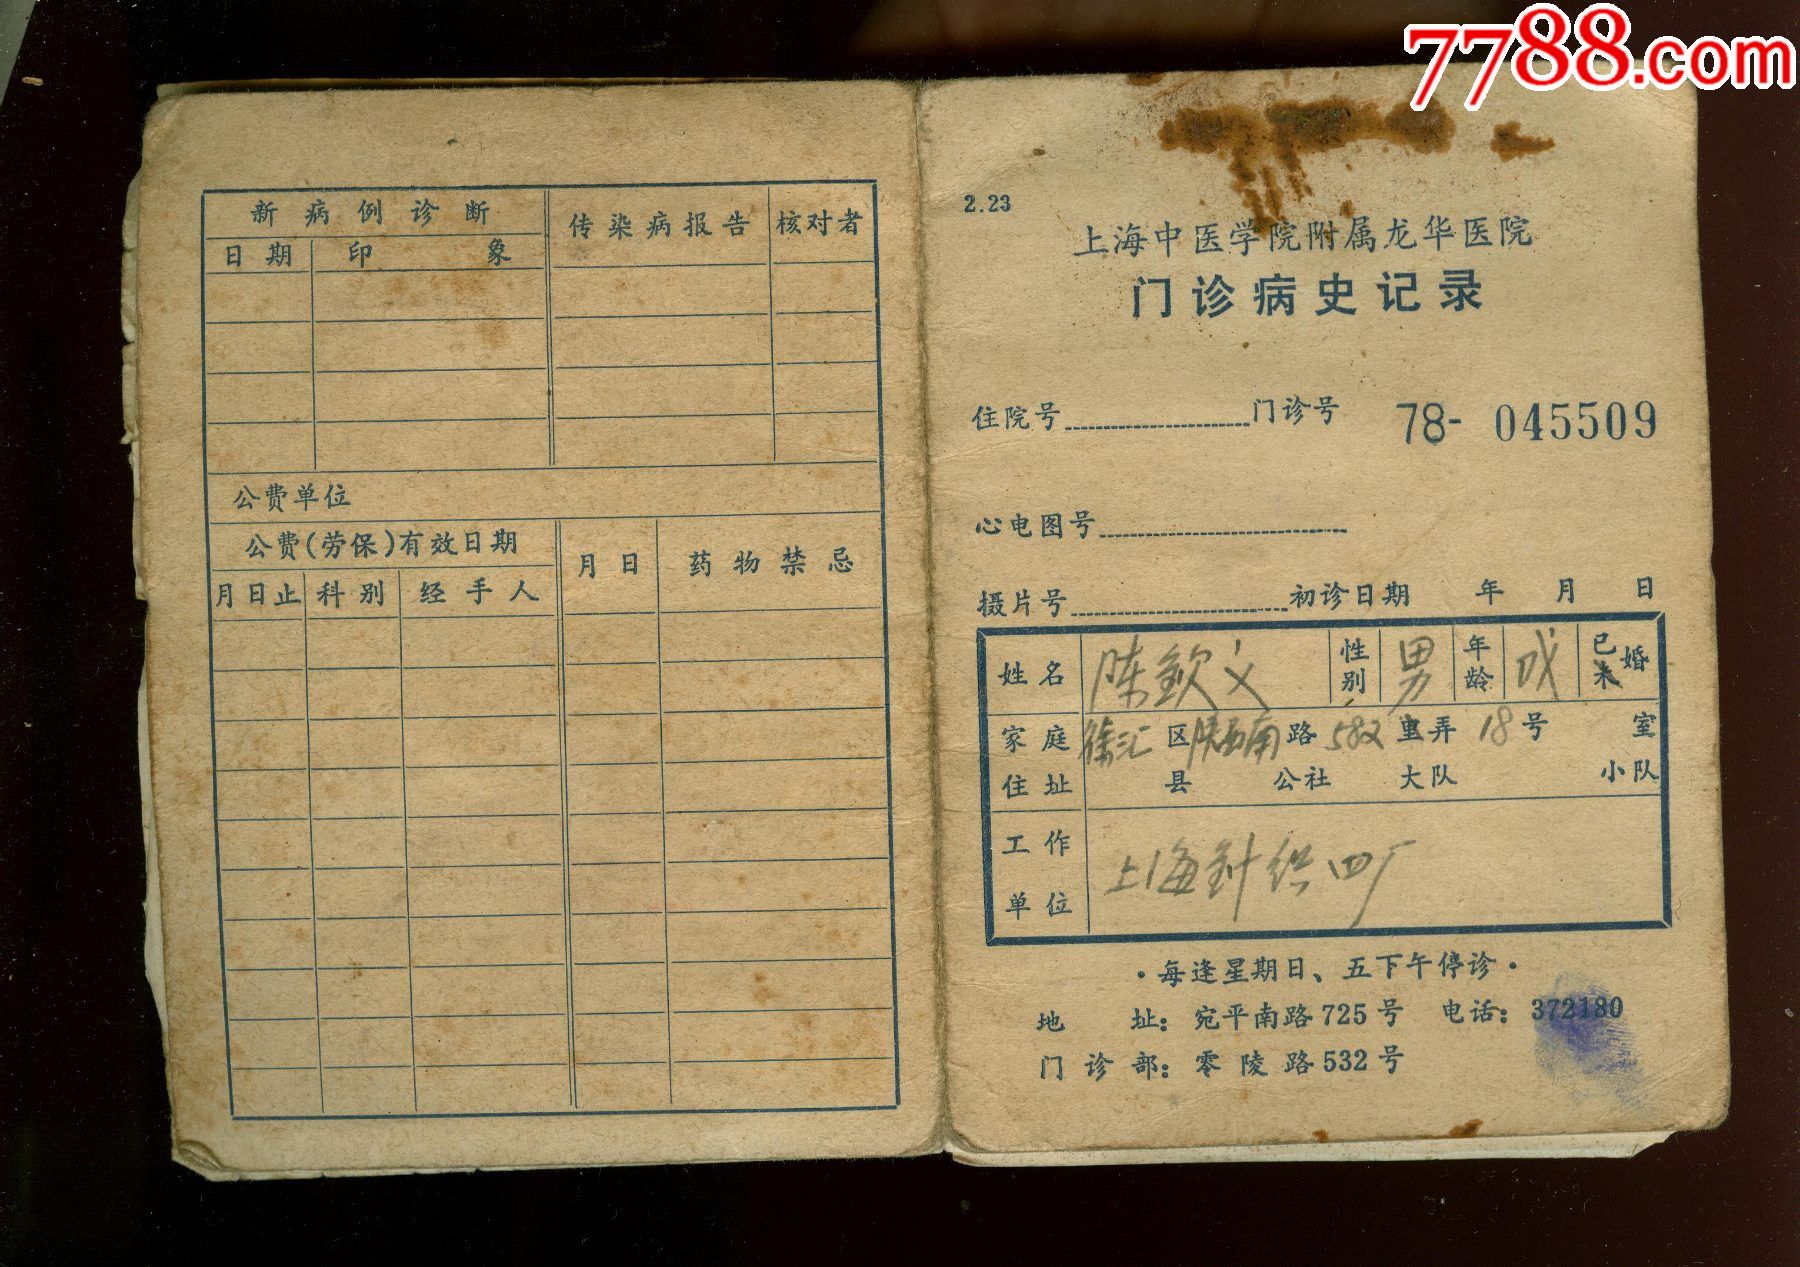 7788.com
新病例诊断
传染病报告
核对者
日期
印象
公费单位
公费(劳保)有效日期
月日
药物禁忌
月日止
科别
经手人
2.23
上海中医学院附属龙华医院
门诊病史记录
住院号 门诊号 78- 045509
心电图号
摄片号 初诊日期 年 月 日
姓名 陈钦义 性别 男 年龄 成 已未婚
家庭住址 徐汇区陕西南路582弄18号 室
县 公社 大队 小队
工作单位 上海针织四厂
·每逢星期日、五下午停诊·
地址:宛平南路725号 电话:372180
门诊部:零陵路532号